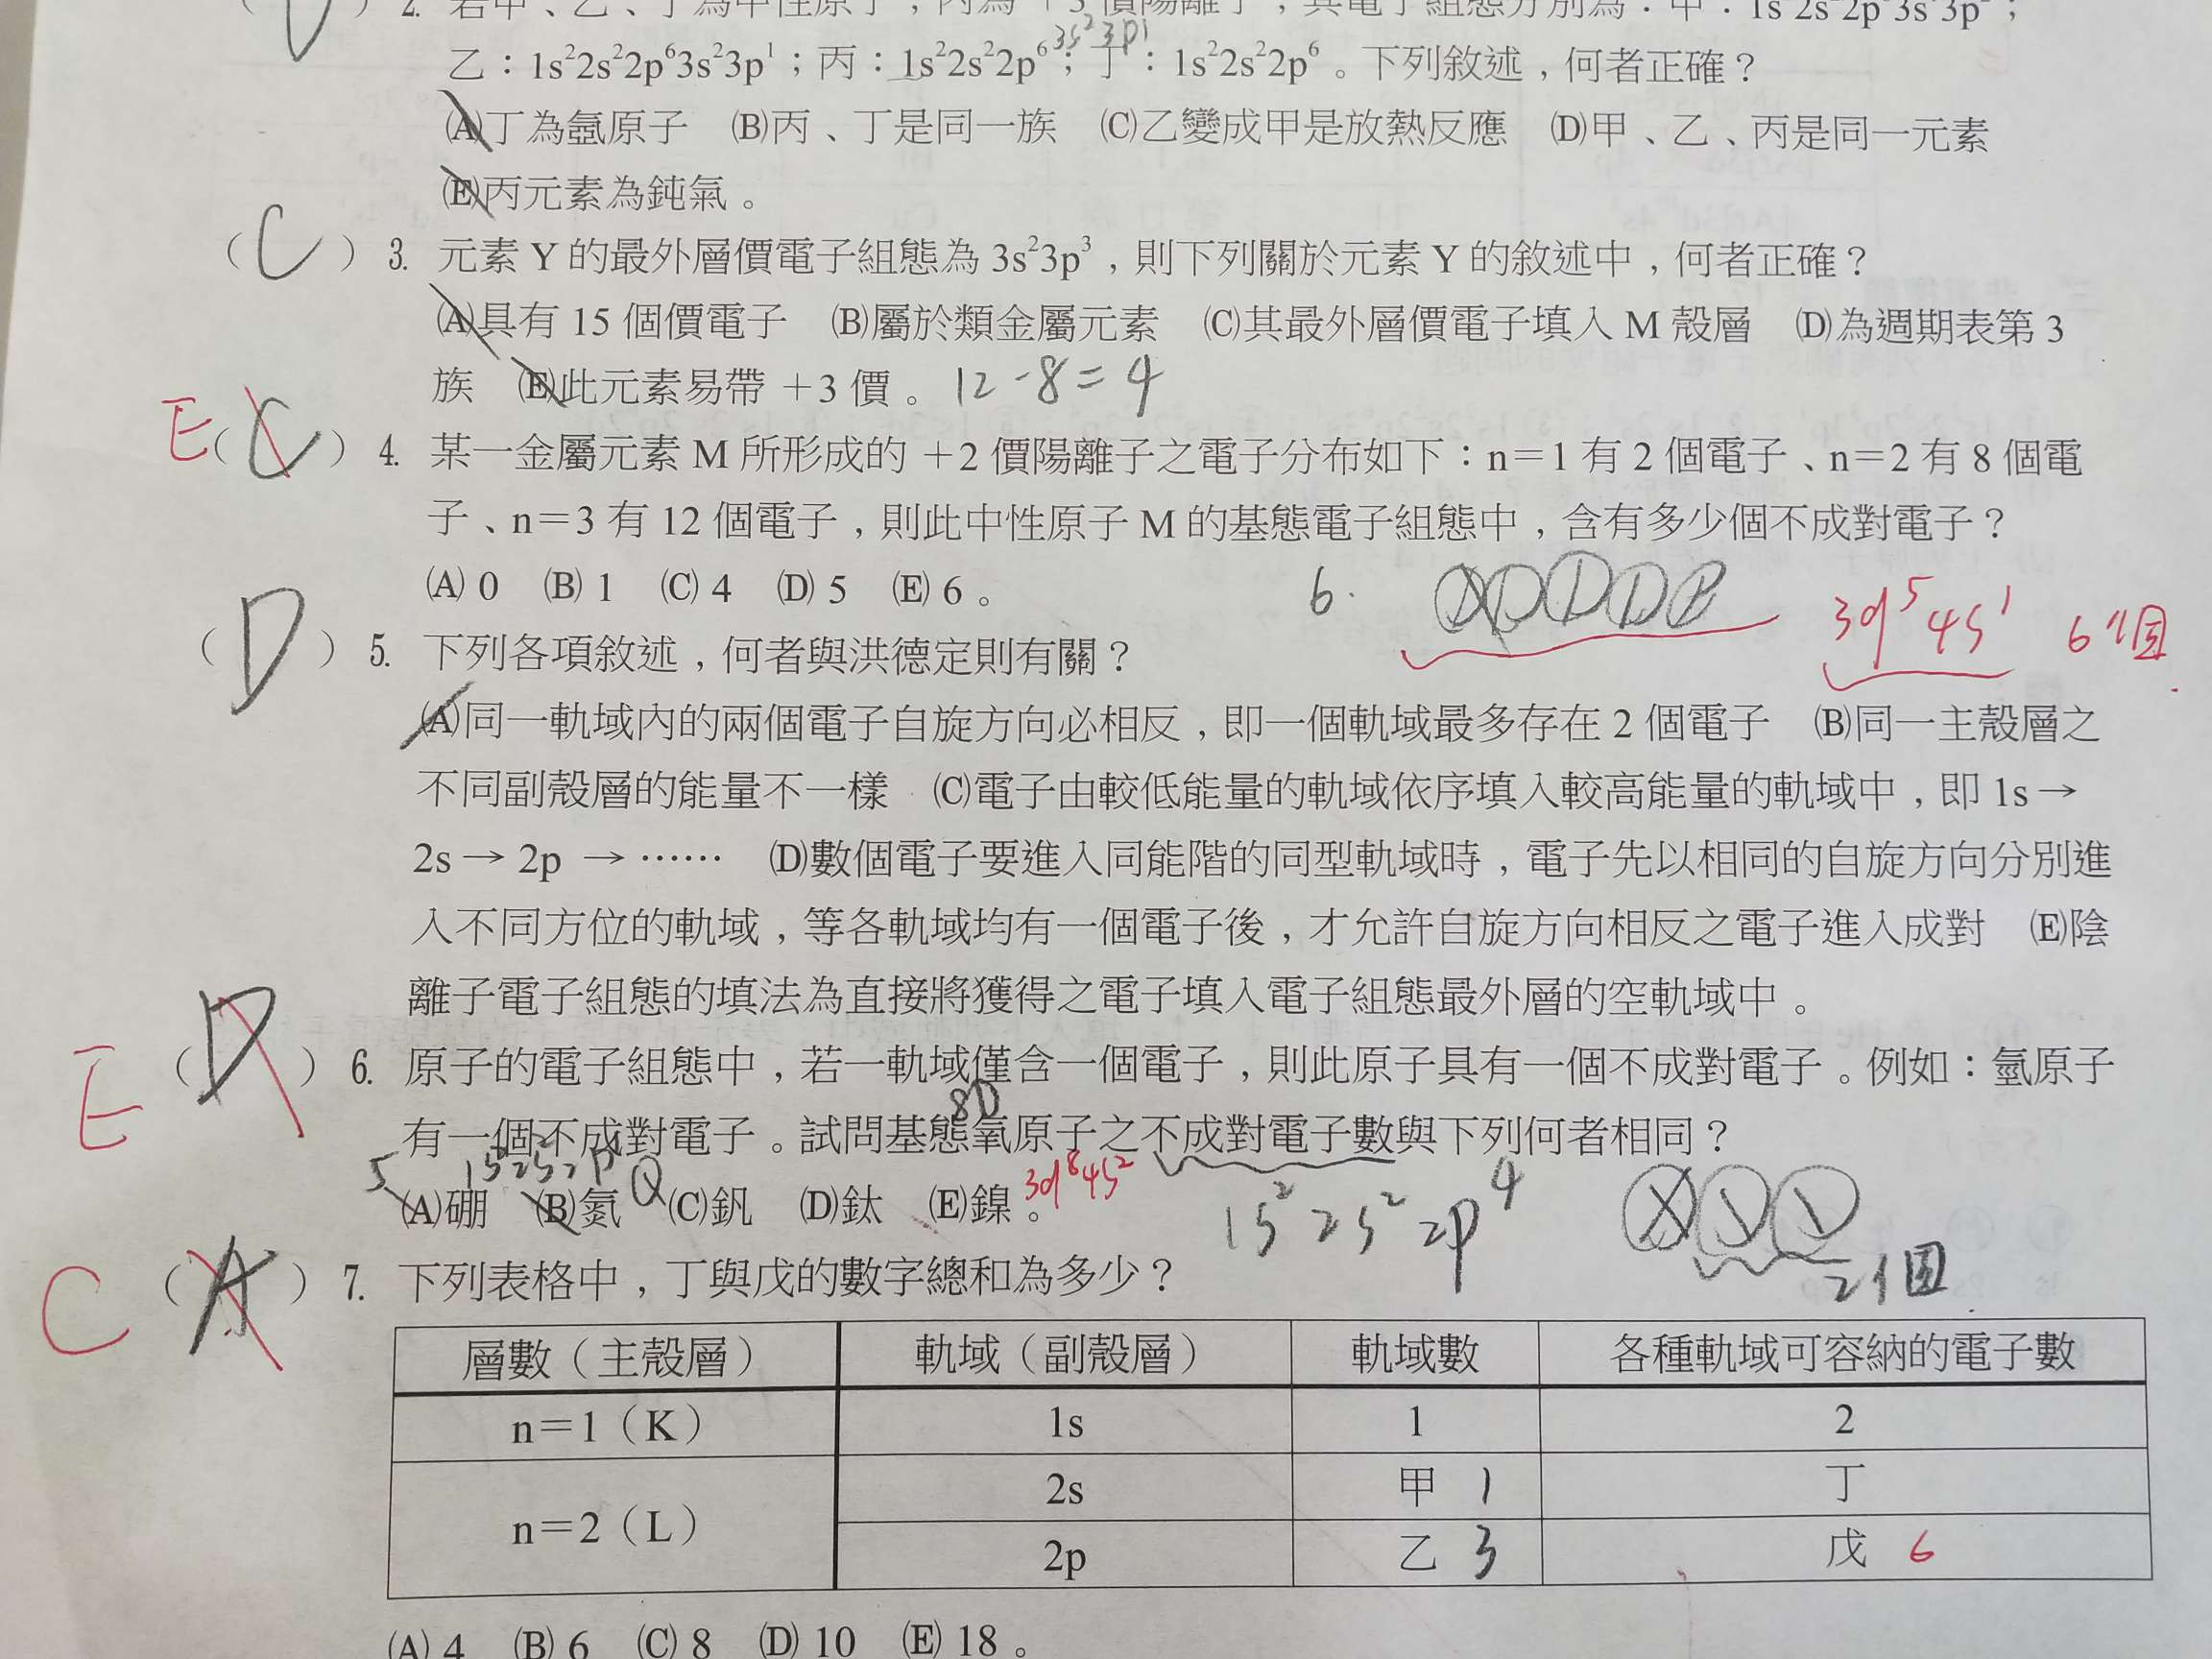 ) 2. 若甲、乙、丁為中性原子，丙為 +3 價陽離子，其電子組態分別為：甲：1s²2s²2p⁶3s¹3p²；
3s²3p¹
乙：1s²2s²2p⁶3s²3p¹；丙：1s²2s²2p⁶；丁：1s²2s²2p⁶。下列敘述，何者正確？
(A)丁為氬原子 (B)丙、丁是同一族 (C)乙變成甲是放熱反應 (D)甲、乙、丙是同一元素
(E)丙元素為鈍氣。
( C ) 3. 元素 Y 的最外層價電子組態為 3s²3p³，則下列關於元素 Y 的敘述中，何者正確？
(A)具有 15 個價電子 (B)屬於類金屬元素 (C)其最外層價電子填入 M 殼層 (D)為週期表第 3
族 (E)此元素易帶 +3 價。 12-8=4
E ( C ) 4. 某一金屬元素 M 所形成的 +2 價陽離子之電子分布如下：n=1 有 2 個電子、n=2 有 8 個電
子、n=3 有 12 個電子，則此中性原子 M 的基態電子組態中，含有多少個不成對電子？
(A) 0 (B) 1 (C) 4 (D) 5 (E) 6。
6. 3d⁵4s¹ 6個
( D ) 5. 下列各項敘述，何者與洪德定則有關？
(A)同一軌域內的兩個電子自旋方向必相反，即一個軌域最多存在 2 個電子 (B)同一主殼層之
不同副殼層的能量不一樣 (C)電子由較低能量的軌域依序填入較高能量的軌域中，即 1s→
2s→2p →…… (D)數個電子要進入同能階的同型軌域時，電子先以相同的自旋方向分別進
入不同方位的軌域，等各軌域均有一個電子後，才允許自旋方向相反之電子進入成對 (E)陰
離子電子組態的填法為直接將獲得之電子填入電子組態最外層的空軌域中。
E ( D ) 6. 原子的電子組態中，若一軌域僅含一個電子，則此原子具有一個不成對電子。例如：氫原子
8O
有一個不成對電子。試問基態氧原子之不成對電子數與下列何者相同？
5 1s²2s²2p 3d⁸4s²
(A)硼 (B)氮 (C)釩 (D)鈦 (E)鎳。
1s²2s²2p⁴ 2個
C ( A ) 7. 下列表格中，丁與戊的數字總和為多少？
層數（主殼層） 軌域（副殼層） 軌域數 各種軌域可容納的電子數
n=1（K） 1s 1 2
n=2（L） 2s 甲 1 丁
2p 乙 3 戊 6
(A) 4 (B) 6 (C) 8 (D) 10 (E) 18。